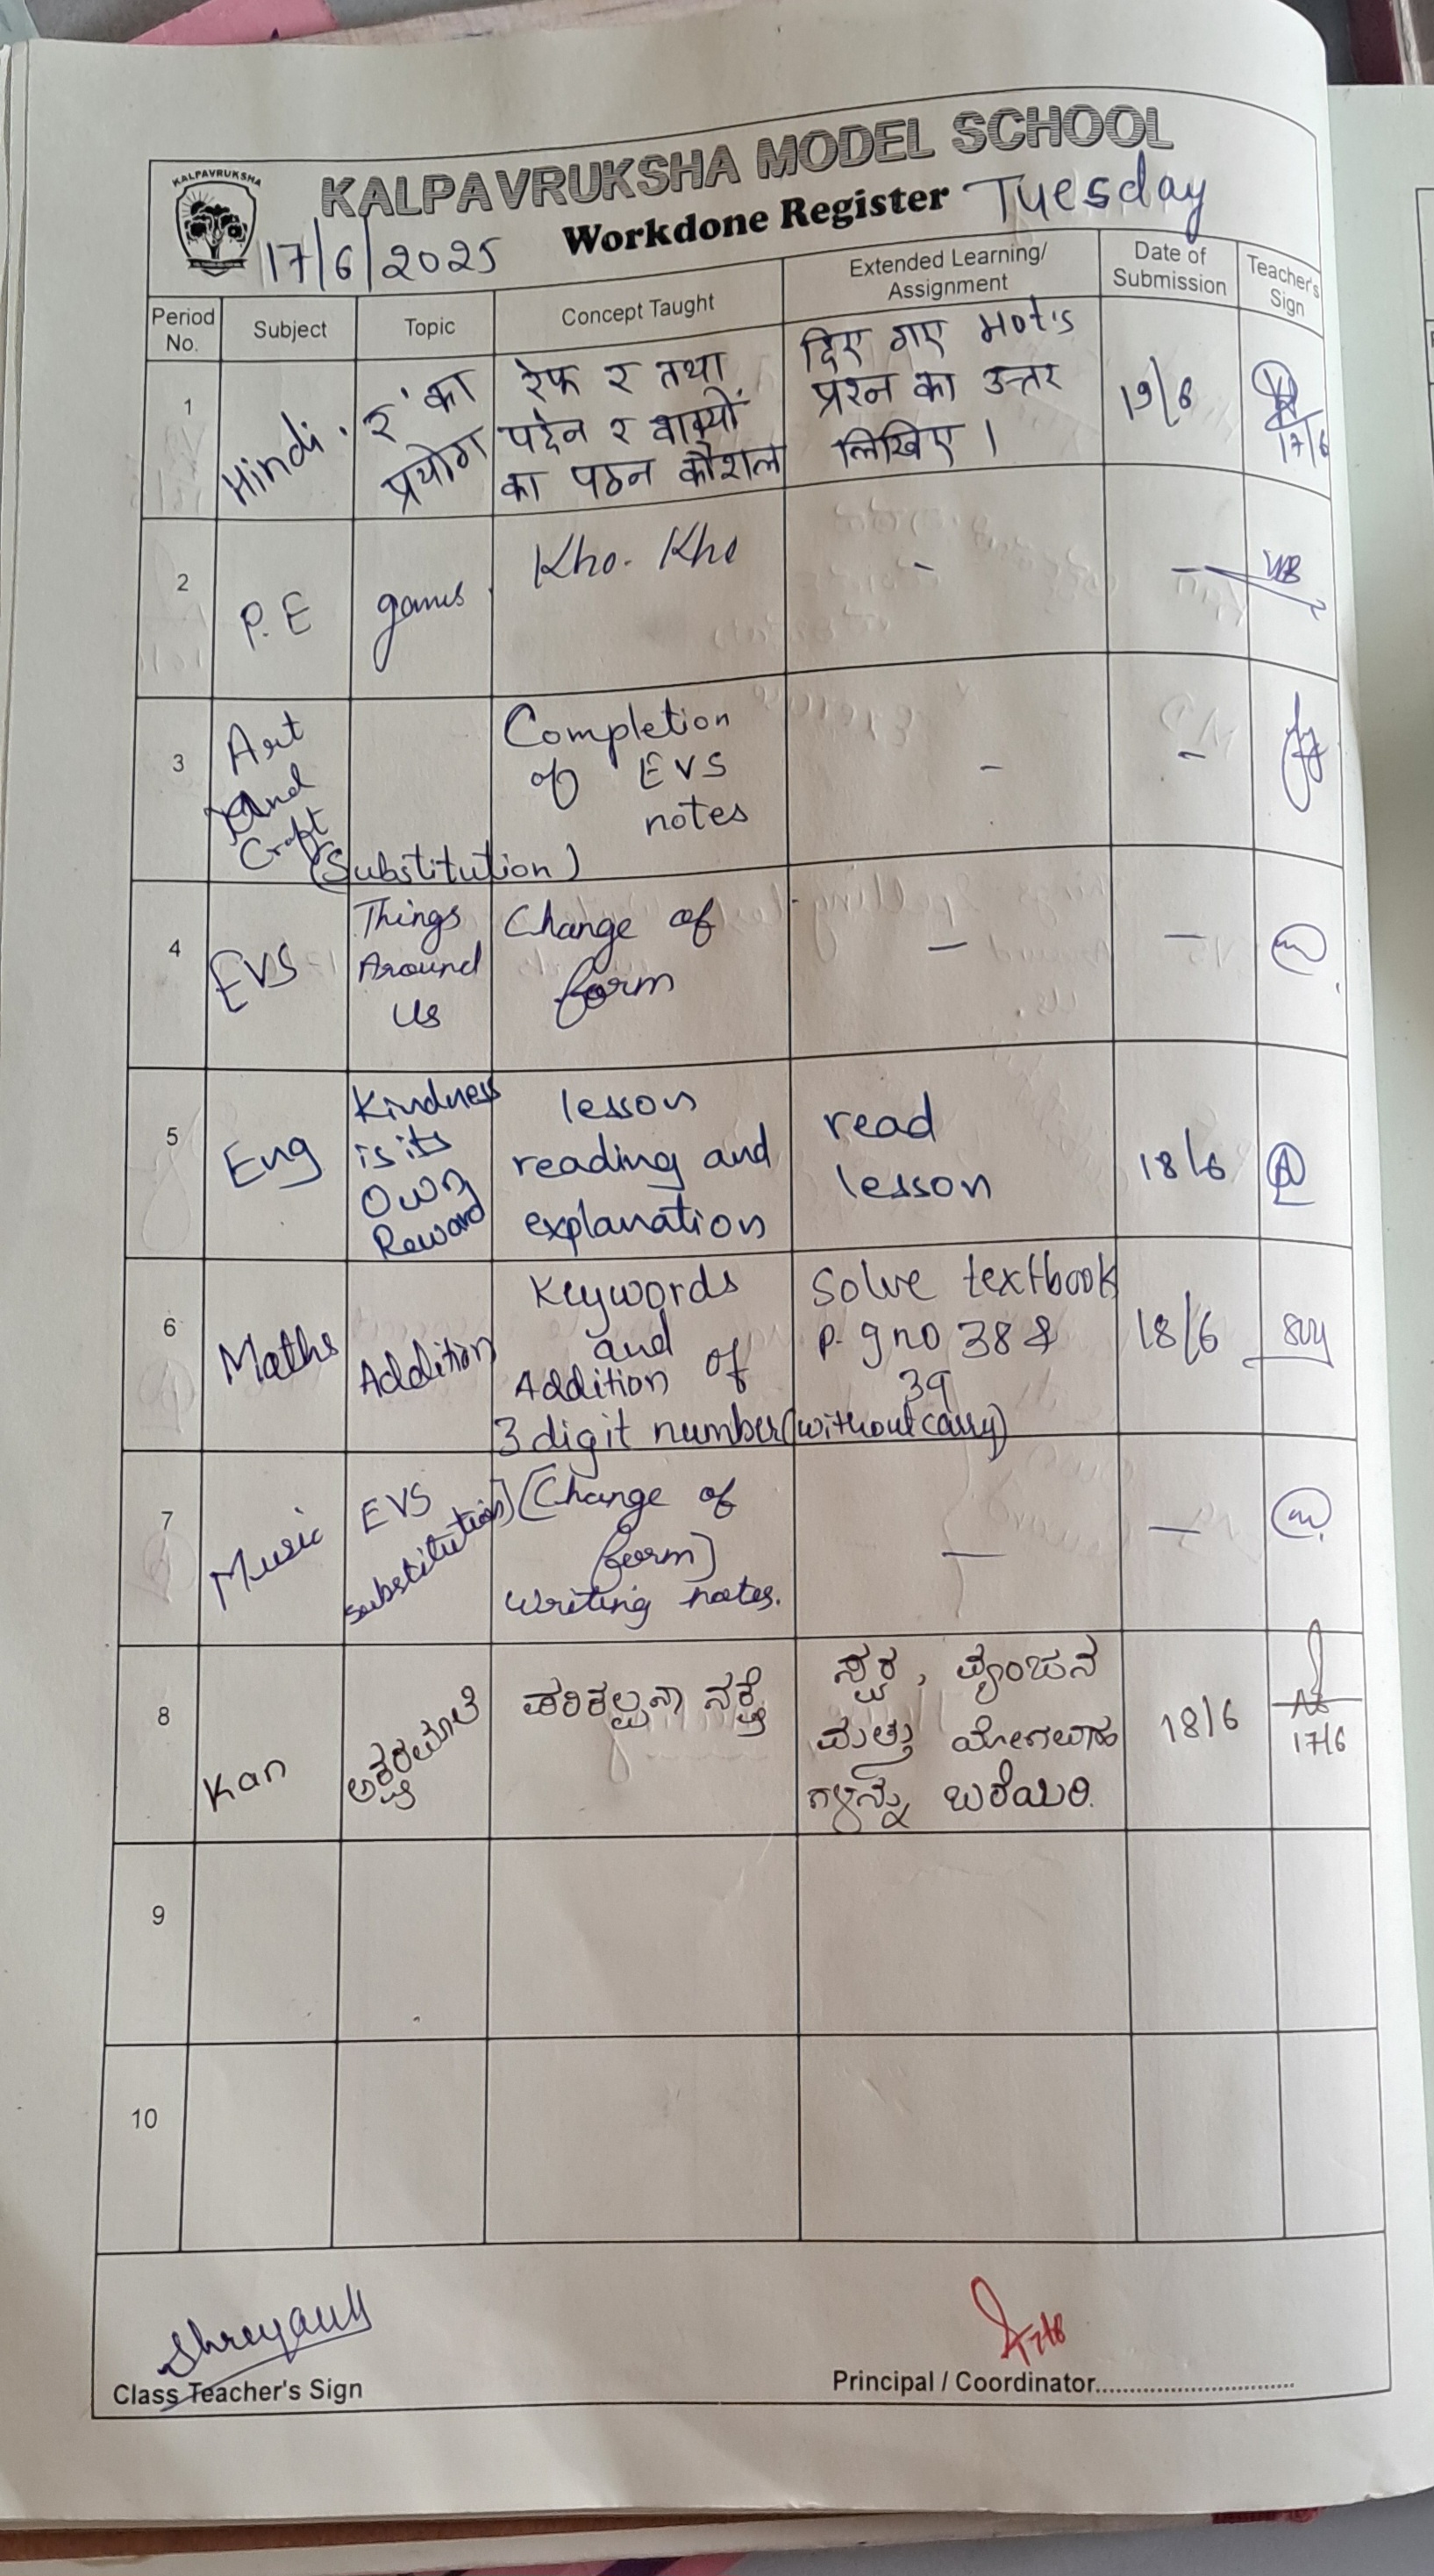 KALPAVRUKSHA
KALPAVRUKSHA MODEL SCHOOL
17/6/2025 Workdone Register Tuesday
Period No. Subject Topic Concept Taught Extended Learning/ Assignment Date of Submission Teacher's Sign
1 Hindi. र' का प्रयोग रेफ र तथा पदेन र वाक्यों का पठन कौशल दिए गए Hot's प्रश्न का उत्तर लिखिए । 19/6 17/6
2 P.E games. Kho-Kho - -
3 Art And Craft (Substitution) Completion of EVS notes - -
4 EVS Things Around Us Change of form - -
5 Eng Kindness is its Own Reward lesson reading and explanation read lesson 18/6
6 Maths Addition Keywords and Addition of 3 digit number (without carry) Solve textbook p.g no 38 & 39 18/6
7 Music EVS substitution) (Change of form) writing notes. - -
8 Kan ಅಕ್ಷರಮಾಲೆ ಪರಿಕಲ್ಪನಾ ನಕ್ಷೆ ಸ್ವರ, ವ್ಯಂಜನ ಮತ್ತು ಯೋಗವಾಹ ಗಳನ್ನು ಬರೆಯಿರಿ. 18/6 17/6
9
10
Class Teacher's Sign Principal / Coordinator..............................